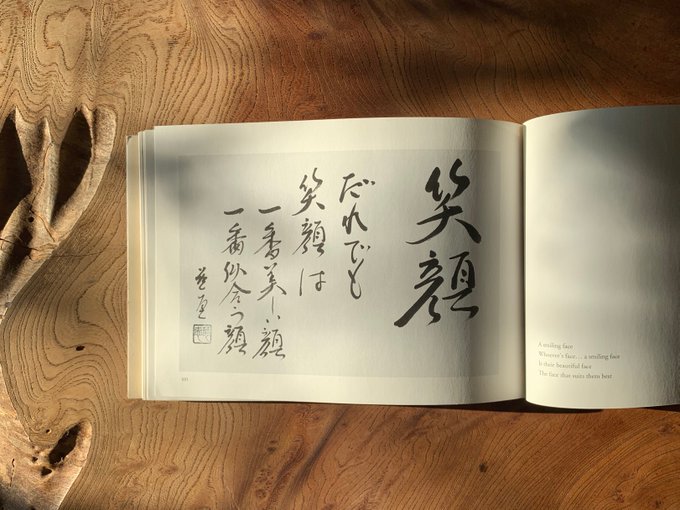 笑顔
だれでも
笑顔は
一番美しい顔
一番似合う顔
A smiling face
Whoever's face... a smiling face
Is their beautiful face
The face that suits them best